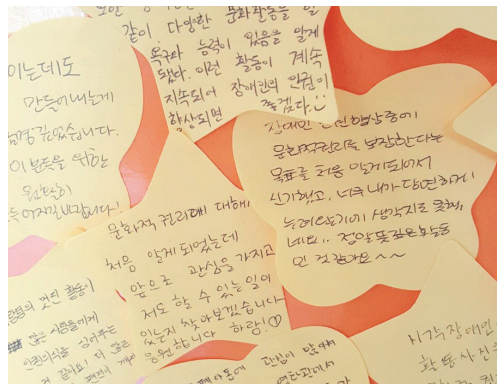 같이 다양한 문화활동을 할
욕구와 능력이 있음을 알게
됐다. 이런 활동이 계속
지속되어 장애인의 인권이
향상되면 좋겠다.
이는데도
만들어내는게
감명깊었습니다.
이 분들을 위한
장애인 인권협상중에
문화적권리를 보장한다는
목표를 처음 알게되어서
신기했고, 너무 내가 당연하게
누려왔기에 생각지도 못했
네요.. 정말 뜻깊은 활동
인 것 같아요~~
문화적 권리에 대해
처음 알게 되었는데
앞으로 관심을 가지고
저도 할 수 있는 일이
있는지 찾아보겠습니다
응원합니다 하랑!♡
멋진 활동이
많은 사람들에게
심어주는
것 같아요! 더 많은
관심이
시각장애인